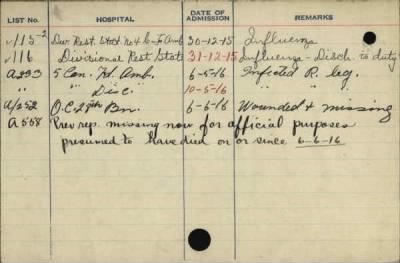 LIST No. HOSPITAL DATE OF ADMISSION REMARKS
√115-2 Div. Rest. Stn No 4 C. F. Amb 30-12-15 Influenza
√116 Divisional Rest Statn 31-12-15 Influenza - Disch to duty
A293 5 Can. Fd. Amb. 6-5-16 Infected R. leg.
" " Disc. 10-5-16 " "
A/252 O.C. 28th Bn. 6-6-16 Wounded & missing
A558 Prev. rep. missing now for official purposes
presumed to have died on or since 6-6-16